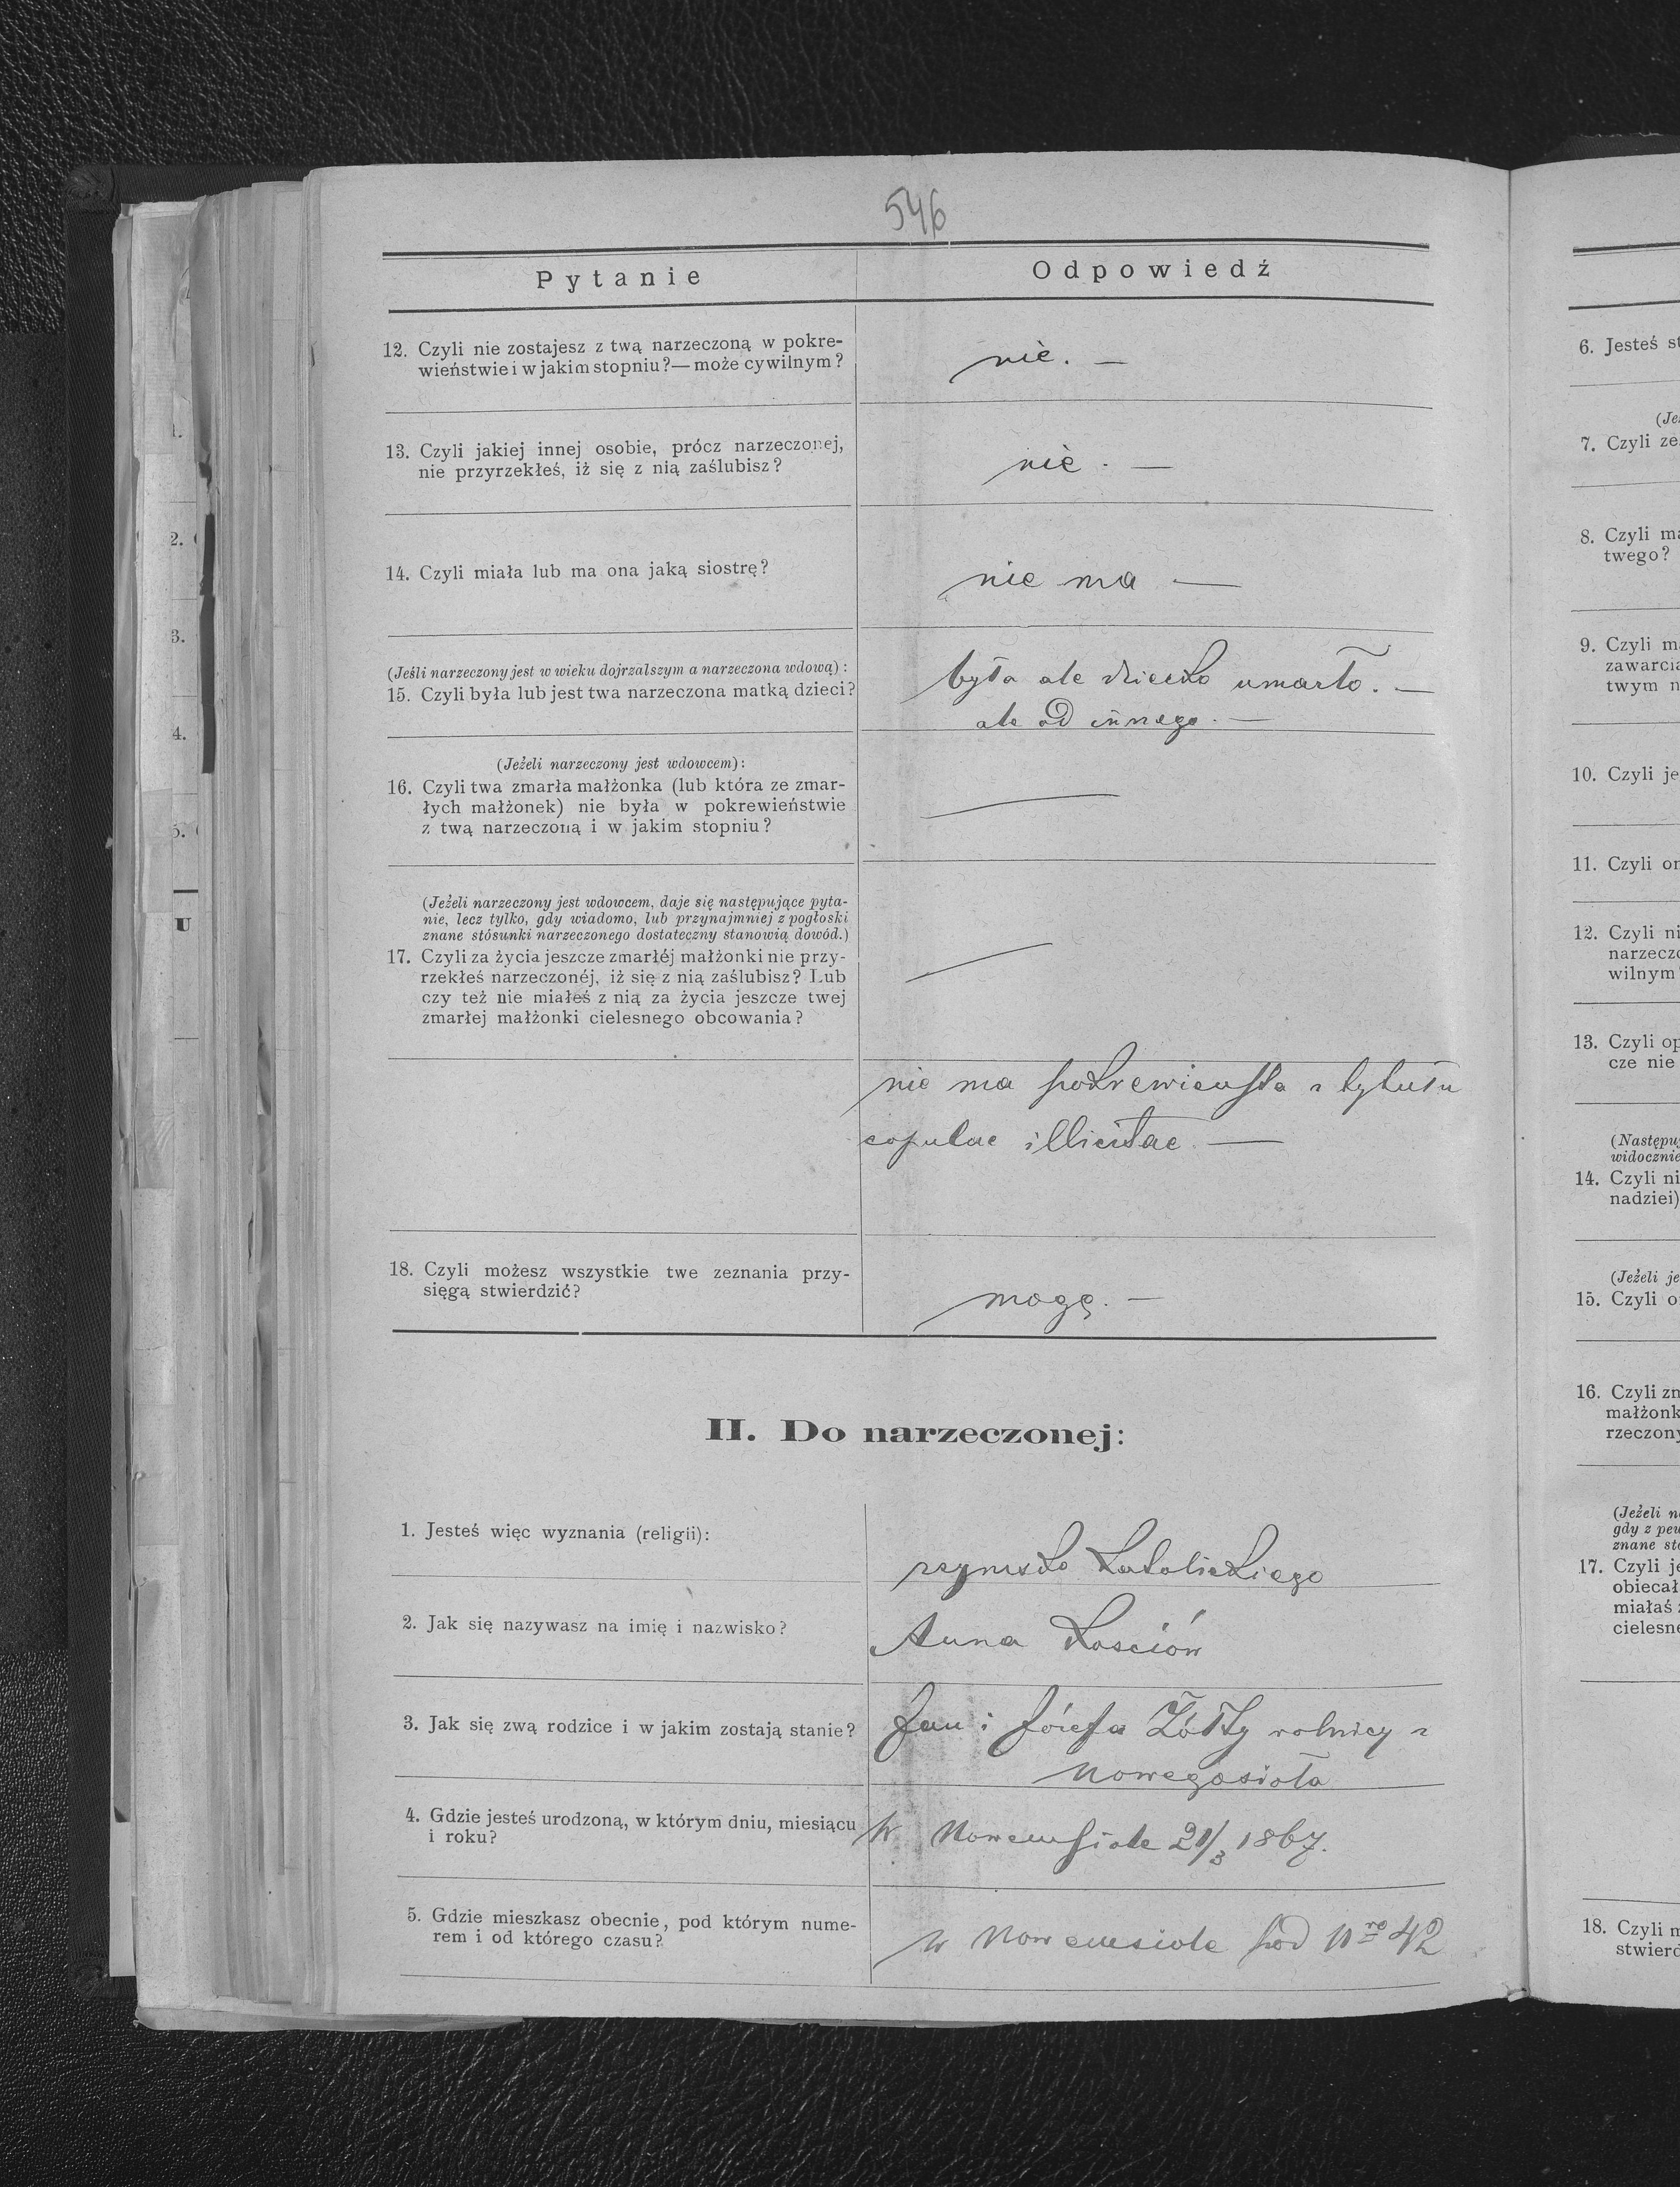 546
Pytanie
Odpowiedź
12. Czyli nie zostajesz z twą narzeczoną w pokre-
wieństwie i w jakim stopniu?— może cywilnym?
nie. —
13. Czyli jakiej innej osobie, prócz narzeczonej,
nie przyrzekłeś, iż się z nią zaślubisz?
nie. —
14. Czyli miała lub ma ona jaką siostrę?
nie ma —
(Jeśli narzeczony jest w wieku dojrzalszym a narzeczona wdową):
15. Czyli była lub jest twa narzeczona matką dzieci?
była ale dziecko umarło. —
ale od innego. —
(Jeżeli narzeczony jest wdowcem):
16. Czyli twa zmarła małżonka (lub która ze zmar-
łych małżonek) nie była w pokrewieństwie
z twą narzeczoną i w jakim stopniu?
—
(Jeżeli narzeczony jest wdowcem, daje się następujące pyta-
nie, lecz tylko, gdy wiadomo, lub przynajmniej z pogłoski
znane stósunki narzeczonego dostateczny stanowią dowód.)
17. Czyli za życia jeszcze zmarłéj małżonki nie przy-
rzekłeś narzeczonéj, iż się z nią zaślubisz? Lub
czy też nie miałeś z nią za życia jeszcze twej
zmarłej małżonki cielesnego obcowania?
—
nie ma pokrewieństa z tytułu
copulae illicitae —
18. Czyli możesz wszystkie twe zeznania przy-
sięgą stwierdzić?
mogę. —
II. Do narzeczonej:
1. Jesteś więc wyznania (religii):
rzymsko katolickiego
2. Jak się nazywasz na imię i nazwisko?
Anna Kościów
3. Jak się zwą rodzice i w jakim zostają stanie?
Jan i Józefa Żółty rolnicy z
Nowegosioła
4. Gdzie jesteś urodzoną, w którym dniu, miesiącu
i roku?
W Nowemsiole 21/3 1867.
5. Gdzie mieszkasz obecnie, pod którym nume-
rem i od którego czasu?
w Nowemsiole pod Nro 42
6. Jesteś st
(Je
7. Czyli ze
8. Czyli ma
twego?
9. Czyli m
zawarcia
twym n
10. Czyli je
11. Czyli on
12. Czyli ni
narzecz
wilnym
13. Czyli op
cze nie
(Następu
widocznie
14. Czyli ni
nadziei)
(Jeżeli je
15. Czyli o
16. Czyli zm
małżonk
rzeczony
(Jeżeli n
gdy z pew
znane sto
17. Czyli je
obiecał
miałaś
cielesne
18. Czyli m
stwierd
2.
3.
4.
5.
U